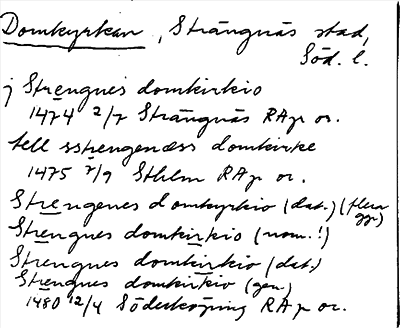 Domkyrkan, Strängnäs stad,
Söd. l.
j Strengnes domkirkio
1474 2/7 Strängnäs RAp or.
till sstrengenæss domkirke
1475 7/9 Sthlm RAp or.
Strengenes domkyrkio (dat.) (flera ggr)
Strengnes domkirkio (nom.!)
Strengnes domkirkio (dat.)
Strengnes domkirkio (gen.)
1480 12/4 Söderköping RAp or.